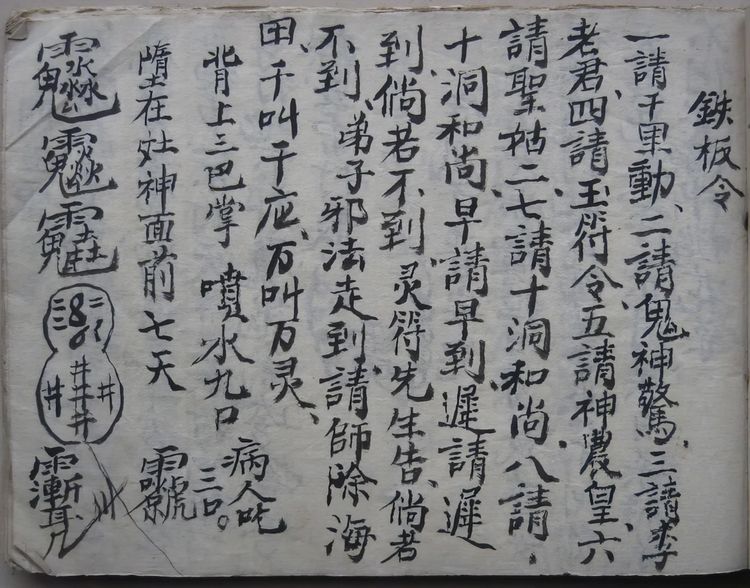 鉄板令
一請千里動、二請鬼神驚、三請李
老君、四請玉符令、五請神農皇、六
請聖姑二、七請十洞和尚、八請、
十洞和尚、早請早到、遲請遲
到、倘若不到、灵符先生告、倘若
不到、弟子邪法走到、請師除海
田、千叫千应、万叫万灵、
背上三巴掌 噴水九口 病人吃三口。
隋土在灶神面前七天